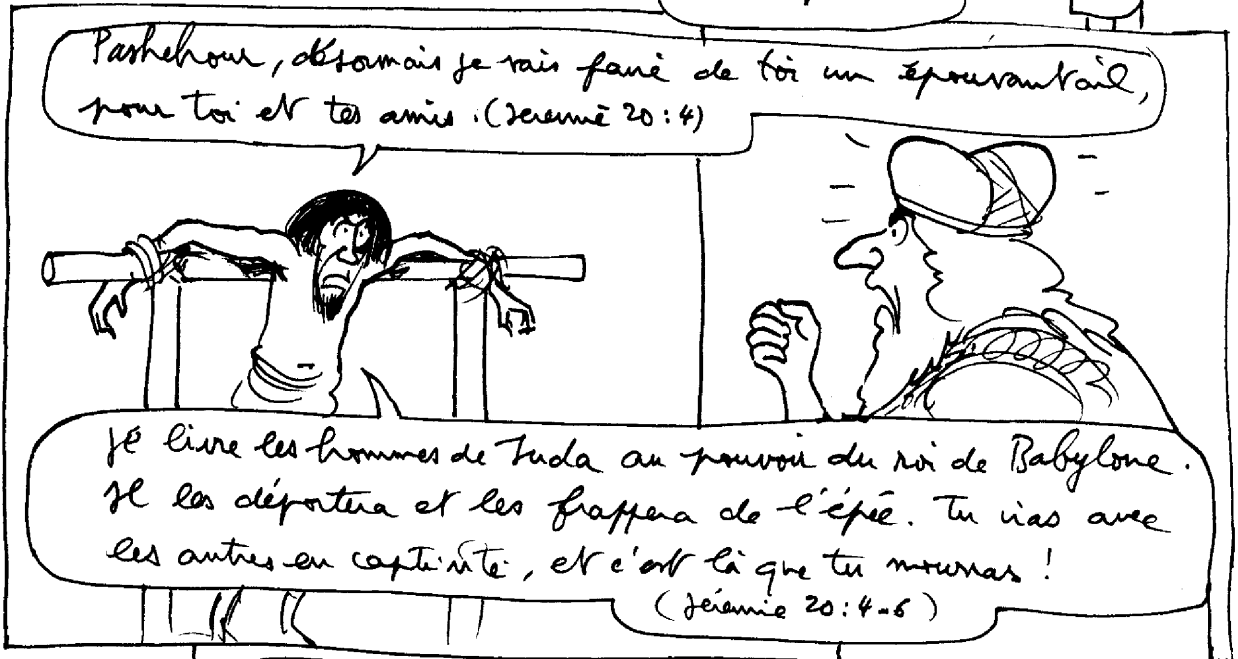 Pashehour, désormais je vais faire de toi un épouvantail,
pour toi et tes amis. (Jérémie 20:4)
Je livre les hommes de Juda au pouvoir du roi de Babylone.
Il les déportera et les frappera de l'épée. Tu iras avec
les autres en captivité, et c'est là que tu mourras !
(Jérémie 20:4-6)